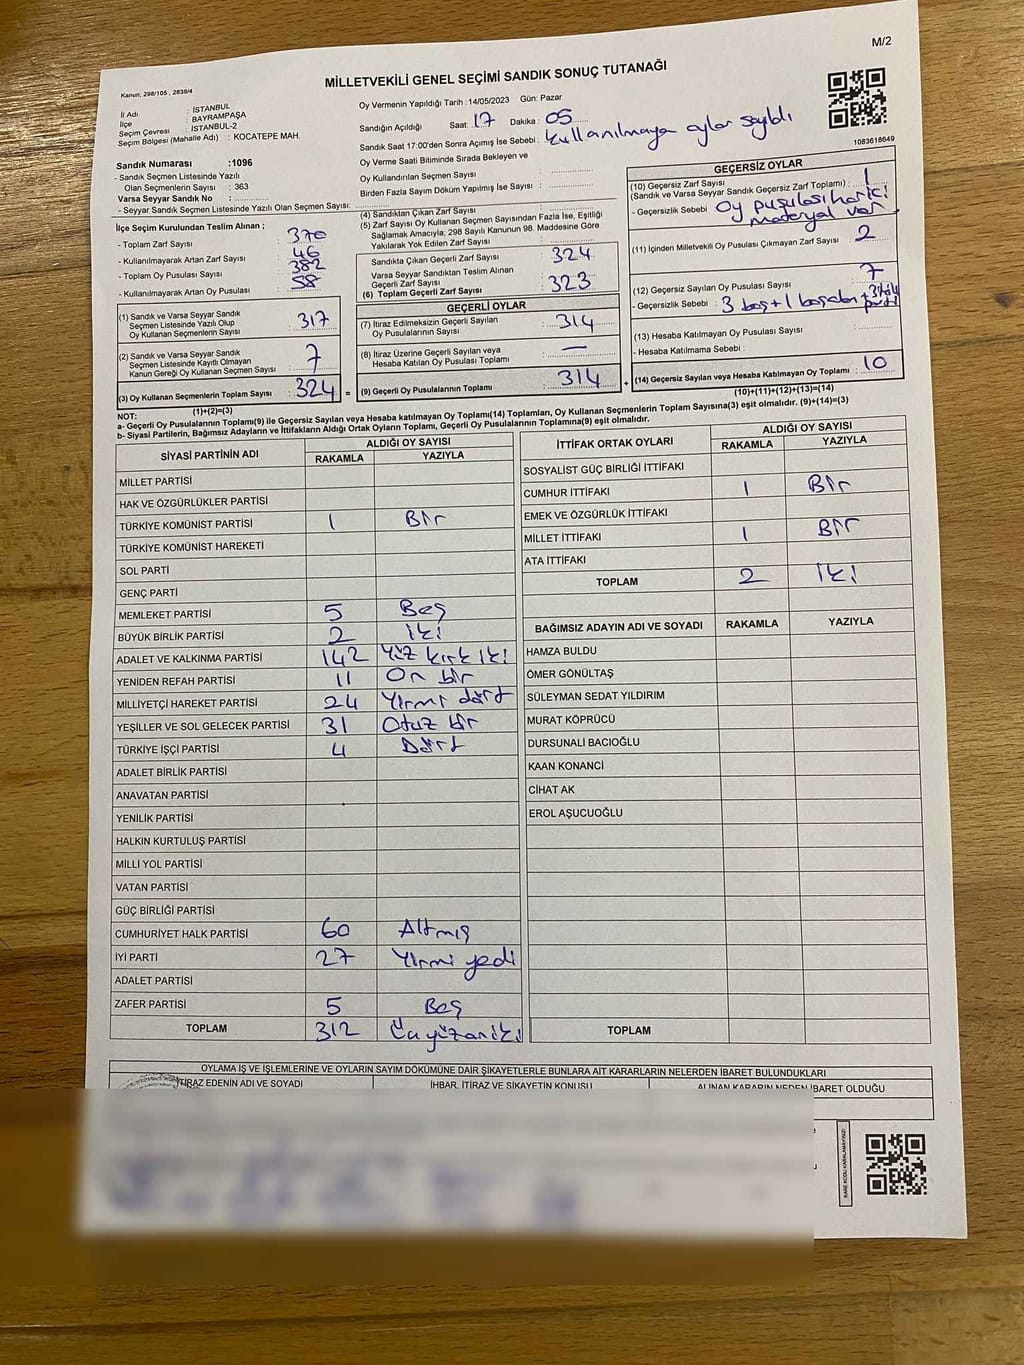 M/2
MİLLETVEKİLİ GENEL SEÇİMİ SANDIK SONUÇ TUTANAĞI
Kanun; 298/105 , 2839/4
İl Adı : İSTANBUL
İlçe : BAYRAMPAŞA
Seçim Çevresi : İSTANBUL-2
Seçim Bölgesi (Mahalle Adı) : KOCATEPE MAH.
Sandık Numarası :1096
- Sandık Seçmen Listesinde Yazılı
Olan Seçmenlerin Sayısı : 363
Varsa Seyyar Sandık No :
- Seyyar Sandık Seçmen Listesinde Yazılı Olan Seçmen Sayısı:
Oy Vermenin Yapıldığı Tarih : 14/05/2023 Gün: Pazar
Sandığın Açıldığı Saat: 17 Dakika: 05
Sandık Saat 17:00'den Sonra Açımış İse Sebebi : Kullanılmayan oylar sayıldı
Oy Verme Saati Bitiminde Sırada Bekleyen ve
Oy Kullandırılan Seçmen Sayısı :
Birden Fazla Sayım Döküm Yapılmış İse Sayısı :
1083618649
İlçe Seçim Kurulundan Teslim Alınan ;
- Toplam Zarf Sayısı : 370
- Kullanılmayarak Artan Zarf Sayısı : 46
- Toplam Oy Pusulası Sayısı : 382
- Kullanılmayarak Artan Oy Pusulası : 58
(1) Sandık ve Varsa Seyyar Sandık
Seçmen Listesinde Yazılı Olup
Oy Kullanan Seçmenlerin Sayısı : 317
(2) Sandık ve Varsa Seyyar Sandık
Seçmen Listesinde Kayıtlı Olmayan
Kanun Gereği Oy Kullanan Seçmen Sayısı : 7
(3) Oy Kullanan Seçmenlerin Toplam Sayısı : 324 =
(1)+(2)=(3)
(4) Sandıktan Çıkan Zarf Sayısı :
(5) Zarf Sayısı Oy Kullanan Seçmen Sayısından Fazla İse, Eşitliği
Sağlamak Amacıyla; 298 Sayılı Kanunun 98. Maddesine Göre
Yakılarak Yok Edilen Zarf Sayısı :
Sandıkta Çıkan Geçerli Zarf Sayısı : 324
Varsa Seyyar Sandıktan Teslim Alınan
Geçerli Zarf Sayısı :
(6) Toplam Geçerli Zarf Sayısı : 323
GEÇERLİ OYLAR
(7) İtiraz Edilmeksizin Geçerli Sayılan
Oy Pusulalarının Sayısı : 314
(8) İtiraz Üzerine Geçerli Sayılan veya
Hesaba Katılan Oy Pusulası Toplamı : —
(9) Geçerli Oy Pusulalarının Toplamı : 314 +
GEÇERSİZ OYLAR
(10) Geçersiz Zarf Sayısı : 1
(Sandık ve Varsa Seyyar Sandık Geçersiz Zarf Toplamı)
- Geçersizlik Sebebi : Oy pusulası harici
materyal var
(11) İçinden Milletvekili Oy Pusulası Çıkmayan Zarf Sayısı : 2
(12) Geçersiz Sayılan Oy Pusulası Sayısı : 7
- Geçersizlik Sebebi : 3 boş+1
(13) Hesaba Katılmayan Oy Pusulası Sayısı :
- Hesaba Katılmama Sebebi :
(14) Geçersiz Sayılan veya Hesaba Katılmayan Oy Toplamı : 10
(10)+(11)+(12)+(13)=(14)
NOT:
a- Geçerli Oy Pusulalarının Toplamı(9) ile Geçersiz Sayılan veya Hesaba katılmayan Oy Toplamı(14) Toplamları, Oy Kullanan Seçmenlerin Toplam Sayısına(3) eşit olmalıdır. (9)+(14)=(3)
b- Siyasi Partilerin, Bağımsız Adayların ve İttifakların Aldığı Ortak Oyların Toplamı, Geçerli Oy Pusulalarının Toplamına(9) eşit olmalıdır.
SİYASİ PARTİNİN ADI ALDIĞI OY SAYISI
RAKAMLA YAZIYLA
MİLLET PARTİSİ
HAK VE ÖZGÜRLÜKLER PARTİSİ
TÜRKİYE KOMÜNİST PARTİSİ 1 Bir
TÜRKİYE KOMÜNİST HAREKETİ
SOL PARTİ
GENÇ PARTİ
MEMLEKET PARTİSİ 5 Beş
BÜYÜK BİRLİK PARTİSİ 2 İki
ADALET VE KALKINMA PARTİSİ 142 Yüz kırk iki
YENİDEN REFAH PARTİSİ 11 On bir
MİLLİYETÇİ HAREKET PARTİSİ 24 Yirmi dört
YEŞİLLER VE SOL GELECEK PARTİSİ 31 Otuz bir
TÜRKİYE İŞÇİ PARTİSİ 4 Dört
ADALET BİRLİK PARTİSİ
ANAVATAN PARTİSİ
YENİLİK PARTİSİ
HALKIN KURTULUŞ PARTİSİ
MİLLİ YOL PARTİSİ
VATAN PARTİSİ
GÜÇ BİRLİĞİ PARTİSİ
CUMHURİYET HALK PARTİSİ 60 Altmış
İYİ PARTİ 27 Yirmi yedi
ADALET PARTİSİ
ZAFER PARTİSİ 5 Beş
TOPLAM 312 Üçyüzoniki
İTTİFAK ORTAK OYLARI ALDIĞI OY SAYISI
RAKAMLA YAZIYLA
SOSYALİST GÜÇ BİRLİĞİ İTTİFAKI
CUMHUR İTTİFAKI 1 Bir
EMEK VE ÖZGÜRLÜK İTTİFAKI
MİLLET İTTİFAKI 1 Bir
ATA İTTİFAKI
TOPLAM 2 İki
BAĞIMSIZ ADAYIN ADI VE SOYADI RAKAMLA YAZIYLA
HAMZA BULDU
ÖMER GÖNÜLTAŞ
SÜLEYMAN SEDAT YILDIRIM
MURAT KÖPRÜCÜ
DURSUNALİ BACIOĞLU
KAAN KONANCİ
CİHAT AK
EROL AŞUCUOĞLU
TOPLAM
OYLAMA İŞ VE İŞLEMLERİNE VE OYLARIN SAYIM DÖKÜMÜNE DAİR ŞİKAYETLERLE BUNLARA AİT KARARLARIN NELERDEN İBARET BULUNDUKLARI
İTİRAZ EDENİN ADI VE SOYADI İHBAR, İTİRAZ VE ŞİKAYETİN KONUSU ALINAN KARARIN NEDEN İBARET OLDUĞU
KARE KODU KARALAMAYINIZ!